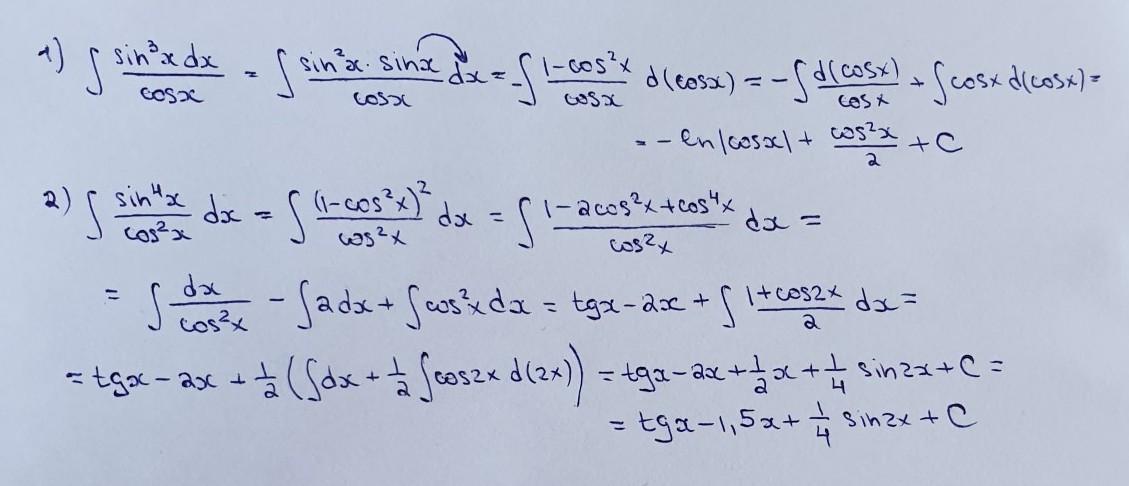 1) ∫ sin³x dx / cosx = ∫ sin²x · sinx / cosx dx = -∫ 1-cos²x / cosx d(cosx) = -∫ d(cosx) / cosx + ∫ cosx d(cosx) =
= - ln|cosx| + cos²x / 2 + C
2) ∫ sin⁴x / cos²x dx = ∫ (1-cos²x)² / cos²x dx = ∫ 1-2cos²x+cos⁴x / cos²x dx =
= ∫ dx / cos²x - ∫ 2dx + ∫ cos²x dx = tgx - 2x + ∫ 1+cos2x / 2 dx =
= tgx - 2x + 1/2 (∫dx + 1/2 ∫cos2x d(2x)) = tgx - 2x + 1/2 x + 1/4 sin2x + C =
= tgx - 1,5x + 1/4 sin2x + C